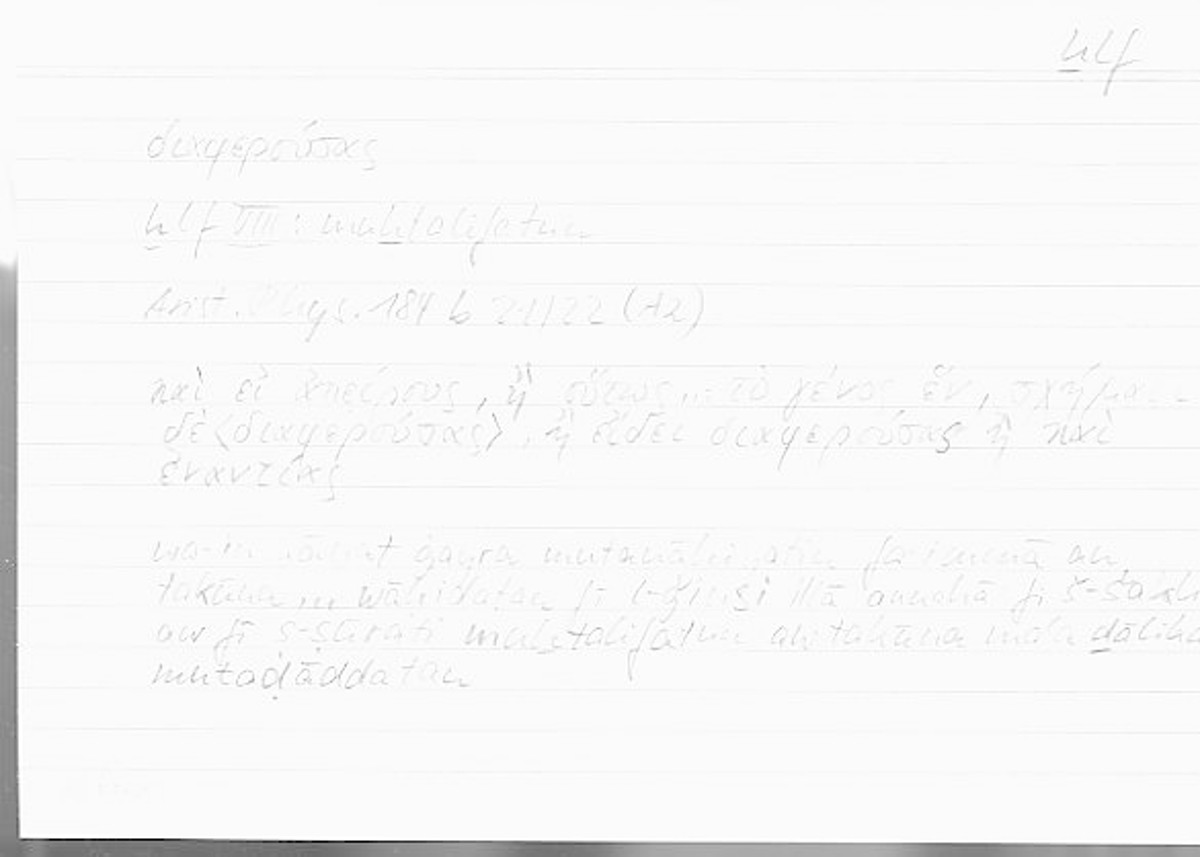 h̲lf
διαφερούσας
h̲lf VIII : muh̲talifatun
Arist. Phys. 184 b 21/22 (A2)
καὶ εἰ ἀπείρους, ἢ οὕτως ... τὸ γένος ἕν, σχήμα
δὲ <διαφερούσας>, ἢ εἴδει διαφερούσας ἢ καὶ
ἐναντίας
wa-in kānat ġayra mutanāhiyatin fa-immā an
takūna wāḥidatan fī l-ǧinsi illā annahā fī š-šakli
aw fī ṣ-ṣūrati muh̲talifatun aw takūna maʿa d̲ālika
mutaḍāddatan